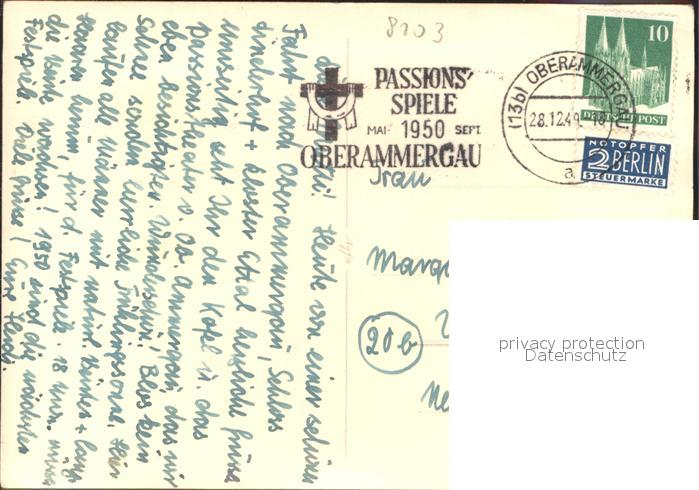 8103
PASSIONS'
SPIELE
MAI- 1950 SEPT.
OBERAMMERGAU
(13b) OBERAMMERGAU
28.12.49
a
10
DEUTSCHE POST
NOTOPFER
2 BERLIN
STEUERMARKE
Frau
Marg
20b
Ne
privacy protection
Datenschutz
Heute von einer schönen
Fahrt nach Oberammergau, Schloss
Linderhof + Kloster Ettal herzliche Grüsse
Umseitig seht Ihr den Kofel u. das
Passionstheater v. Ob. Ammergau, das wir
eben besichtigten. Wunderschön! Blos kein
Schnee sondern herrliche Frühlingssonne. Hier
laufen alle Männer mit Bärten + langen
Haaren herum, für d. Festspiele.
1950 sind die nächsten
Festspiele. Viele Grüsse!